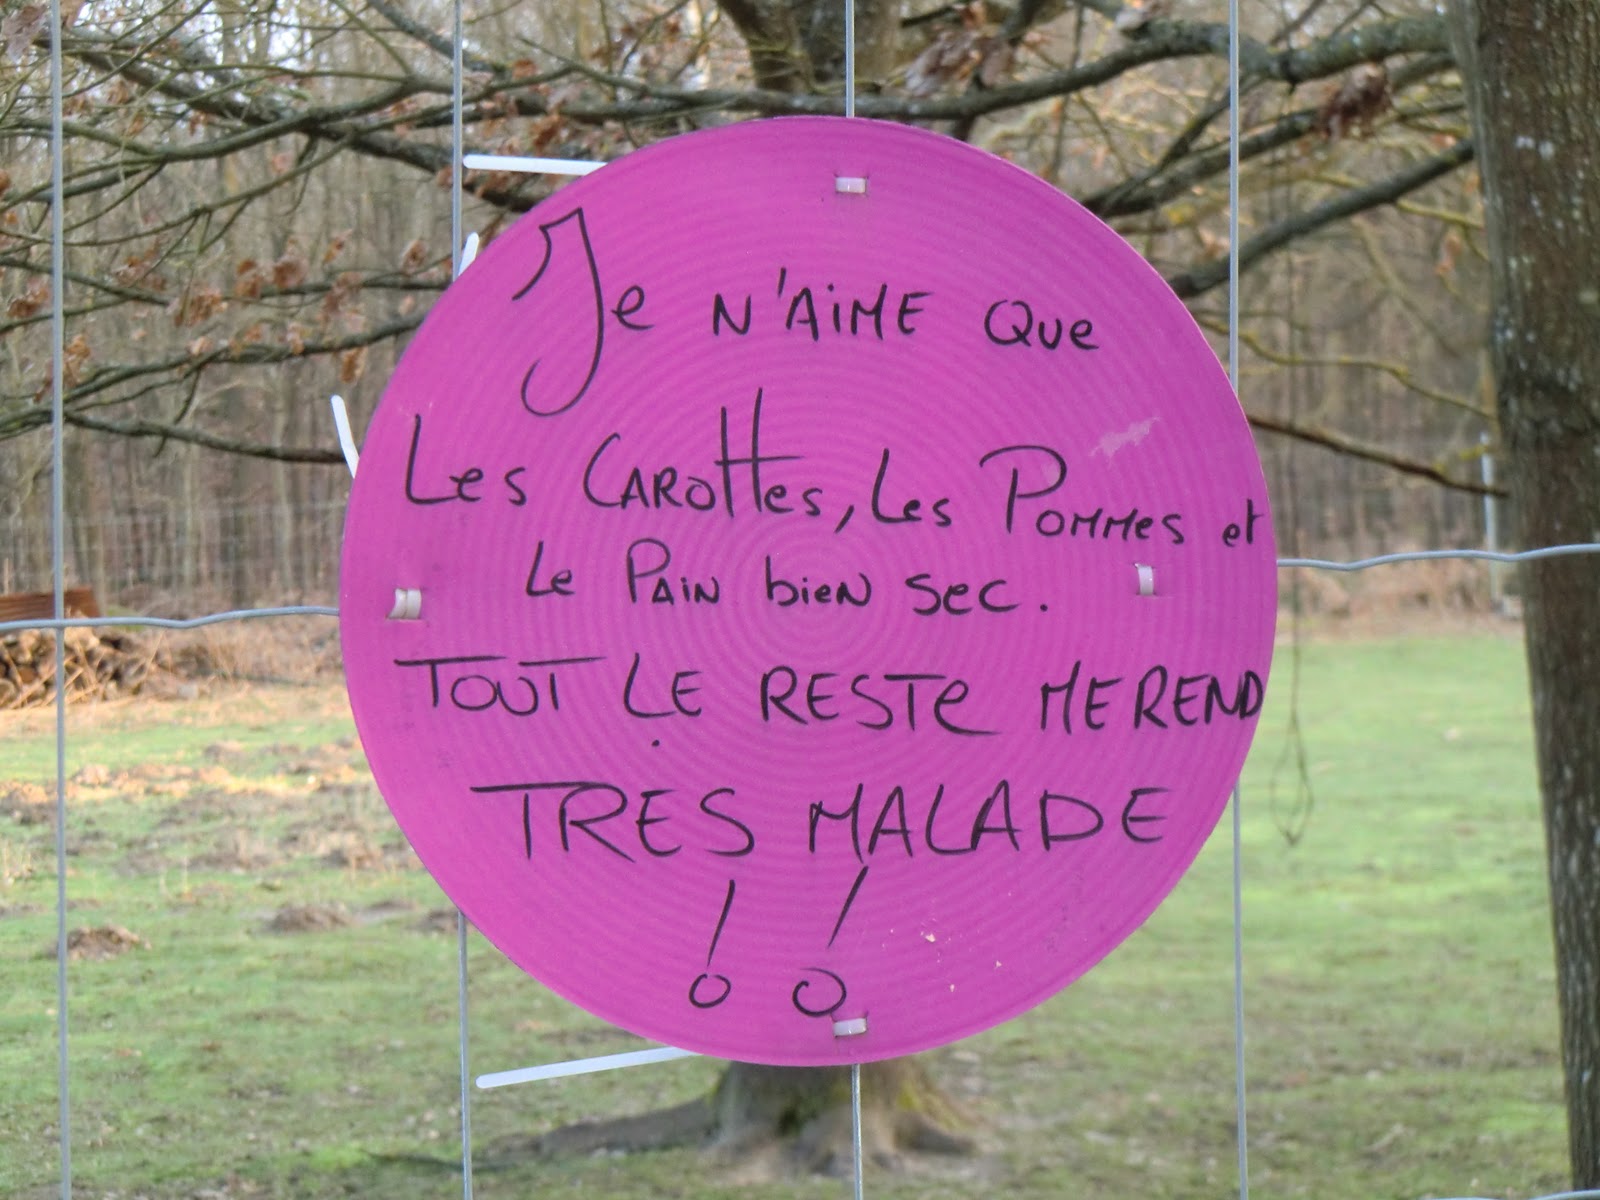 Je N'AiME Que
Les CAROttes, Les POMMes et
Le PAiN bieN sec.
TOUT LE RESTe ME REND
TRES MALADE
! !